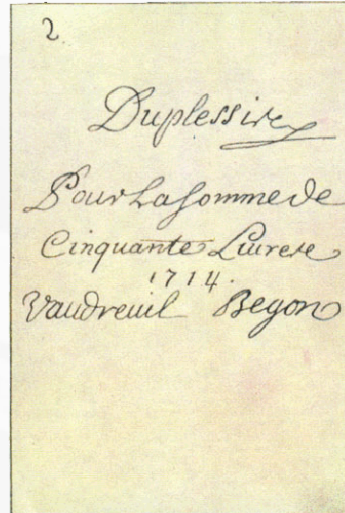 2
Duplessis
Pour La somme de
Cinquante Livres
1714.
Vaudreuil Begon